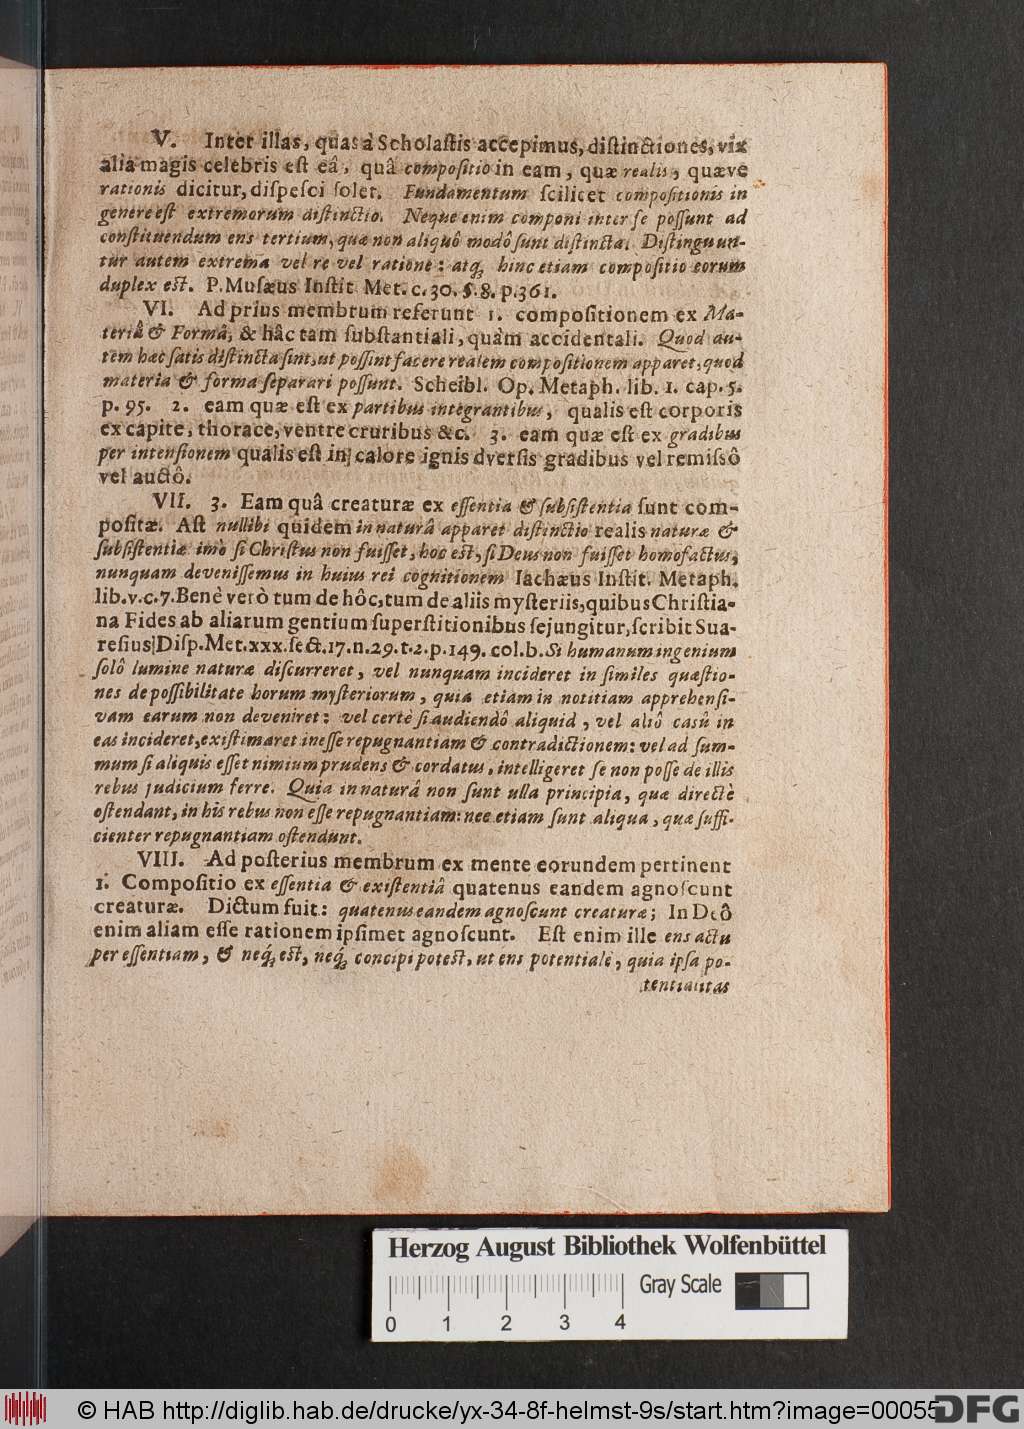 V. Inter illas, quas à Scholaſtis accepimus, diſtinctiones, vix
alia magis celebris eſt eâ, quâ compoſitio in eam, quæ realis, quæve
rationis dicitur, diſpeſci ſolet. Fundamentum ſcilicet compoſitionis in
genere eſt extremorum diſtinctio. Neque enim componi inter ſe poſſunt ad
conſtituendum ens tertium, quæ non aliquô modô ſunt diſtincta. Diſtinguun-
tur autem extrema vel re vel ratione: atq; hinc etiam compoſitio eorum
duplex eſt. P. Muſæus Inſtit Met. c. 30. §. 8. p. 361.
VI. Ad prius membrum referunt 1. compoſitionem ex Ma-
teriâ & Formâ, & hâc tam ſubſtantiali, quàm accidentali. Quod au-
tem hæc ſatis diſtincta ſint, ut poſſint facere realem compoſitionem apparet, quod
materia & forma ſeparari poſſunt. Scheibl. Op. Metaph. lib. 1. cap. 5.
p. 95. 2. eam quæ eſt ex partibus integrantibus, qualis eſt corporis
ex capite, thorace, ventre cruribus &c. 3. eam quæ eſt ex gradibus
per intenſionem qualis eſt in calore ignis dverſis gradibus vel remiſsô
vel auctô.
VII. 3. Eam quâ creaturæ ex eſſentia & ſubſiſtentia ſunt com-
poſitæ. Aſt nullibi quidem in naturâ apparet diſtinctio realis naturæ &
ſubſiſtentiæ imò ſi Chriſtus non fuiſſet, hoc eſt, ſi Deus non fuiſſet homo factus,
nunquam deveniſſemus in huius rei cognitionem Iachæus Inſtit. Metaph.
lib. v. c. 7. Benè verò tum de hôc, tum de aliis myſteriis, quibus Chriſtia-
na Fides ab aliarum gentium ſuperſtitionibus ſejungitur, ſcribit Sua-
reſius Diſp. Met. xxx. ſect. 17. n. 29. t. 2. p. 149. col. b. Si humanum ingenium
ſolô lumine naturæ diſcurreret, vel nunquam incideret in ſimiles quæſtio-
nes de poſſibilitate horum myſteriorum, quia etiam in notitiam apprehenſi-
vam earum non deveniret: vel certè ſi audiendô aliquid, vel aliô caſû in
eas incideret, exiſtimaret ineſſe repugnantiam & contradictionem: vel ad ſum-
mum ſi aliquis eſſet nimium prudens & cordatus, intelligeret ſe non poſſe de illis
rebus judicium ferre. Quia in naturâ non ſunt ulla principia, quæ directè
oſtendant, in his rebus non eſſe repugnantiam: nec etiam ſunt aliqua, quæ ſuffi-
cienter repugnantiam oſtendunt.
VIII. Ad poſterius membrum ex mente eorundem pertinent
1. Compoſitio ex eſſentia & exiſtentiâ quatenus eandem agnoſcunt
creaturæ. Dictum fuit: quatenus eandem agnoſcunt creaturæ; In Deô
enim aliam eſſe rationem ipſimet agnoſcunt. Eſt enim ille ens actu
per eſſentiam, & neq; eſt, neq; concipi poteſt, ut ens potentiale, quia ipſa po-
tentialitas
Herzog August Bibliothek Wolfenbüttel
Gray Scale
0 1 2 3 4
© HAB http://diglib.hab.de/drucke/yx-34-8f-helmst-9s/start.htm?image=00055
DFG